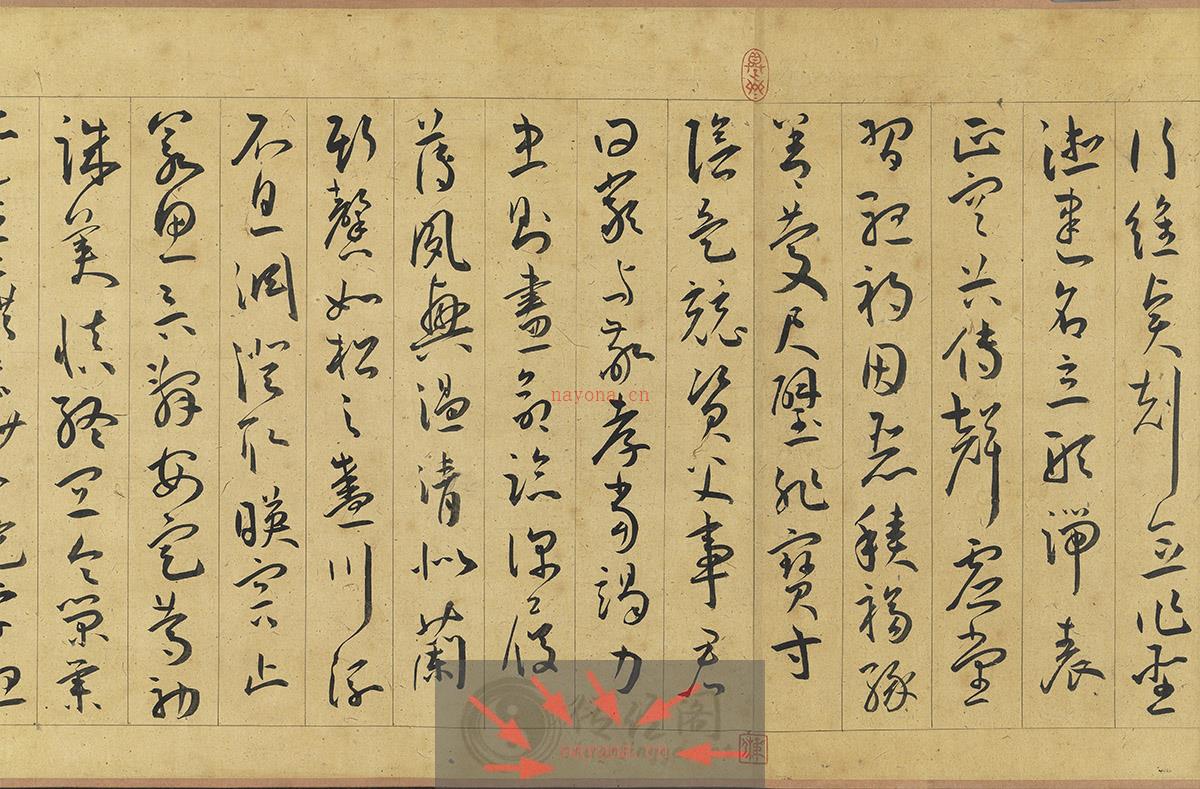 行維賢剋念作聖
德建名立形端表
正空谷傳聲虛堂
習聽禍因惡積福緣
善慶尺璧非寶寸
陰是競資父事君
曰嚴與敬孝當竭力
忠則盡命臨深履
薄夙興溫清似蘭
斯馨如松之盛川流
不息淵澄取暎容止
若思言辭安定篤初
誠美慎終宜令榮業
nayona.cn